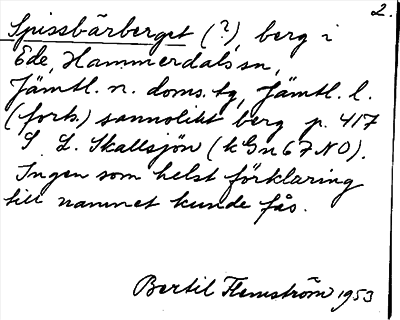 2.
Spissbärberget (?), berg i
Ede, Hammerdals sn,
Jämtl. n. doms. tg, Jämtl. l.
(forts.) sannolikt berg p. 417
S L. Skallsjön (kGn 67 NO).
Ingen som helst förklaring
till namnet kunde fås.
Bertil Flemström 1953